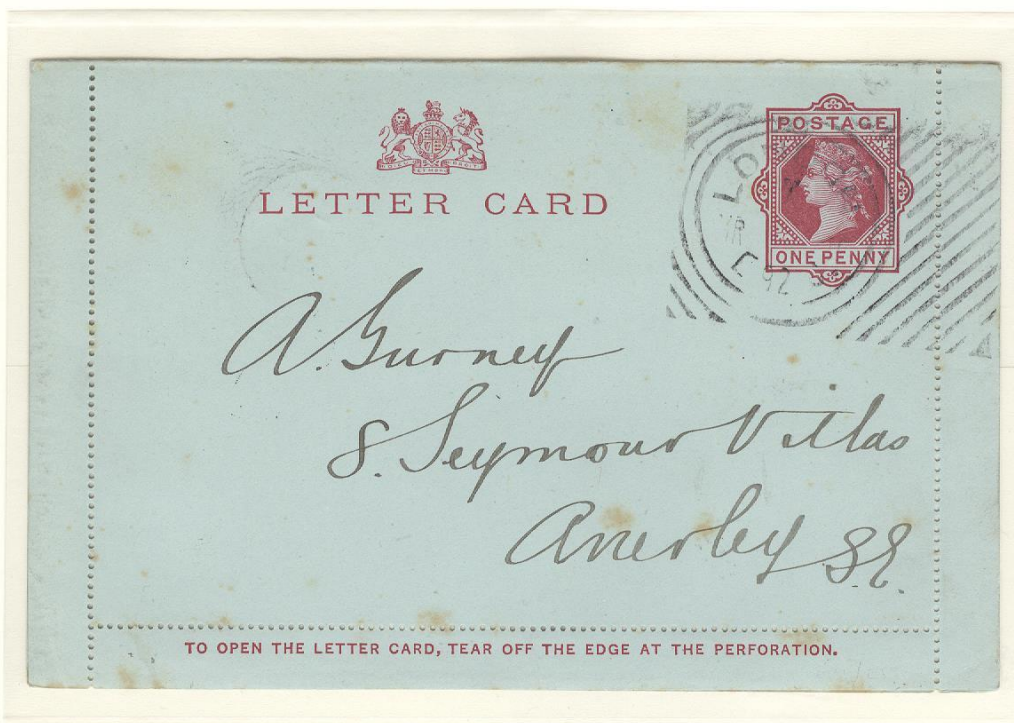 POSTAGE
ONE PENNY
LETTER CARD
A. Gurney
8. Seymour Villas
Anerley S E.
TO OPEN THE LETTER CARD, TEAR OFF THE EDGE AT THE PERFORATION.
92